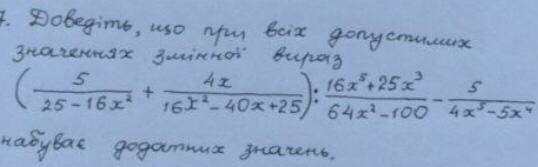 7. Доведіть, що при всіх допустимих
значеннях змінної вираз
(5/(25-16x²) + 4x/(16x²-40x+25)) : (16x⁵+25x³)/(64x²-100) - 5/(4x⁵-5x⁴)
набуває додатних значень.